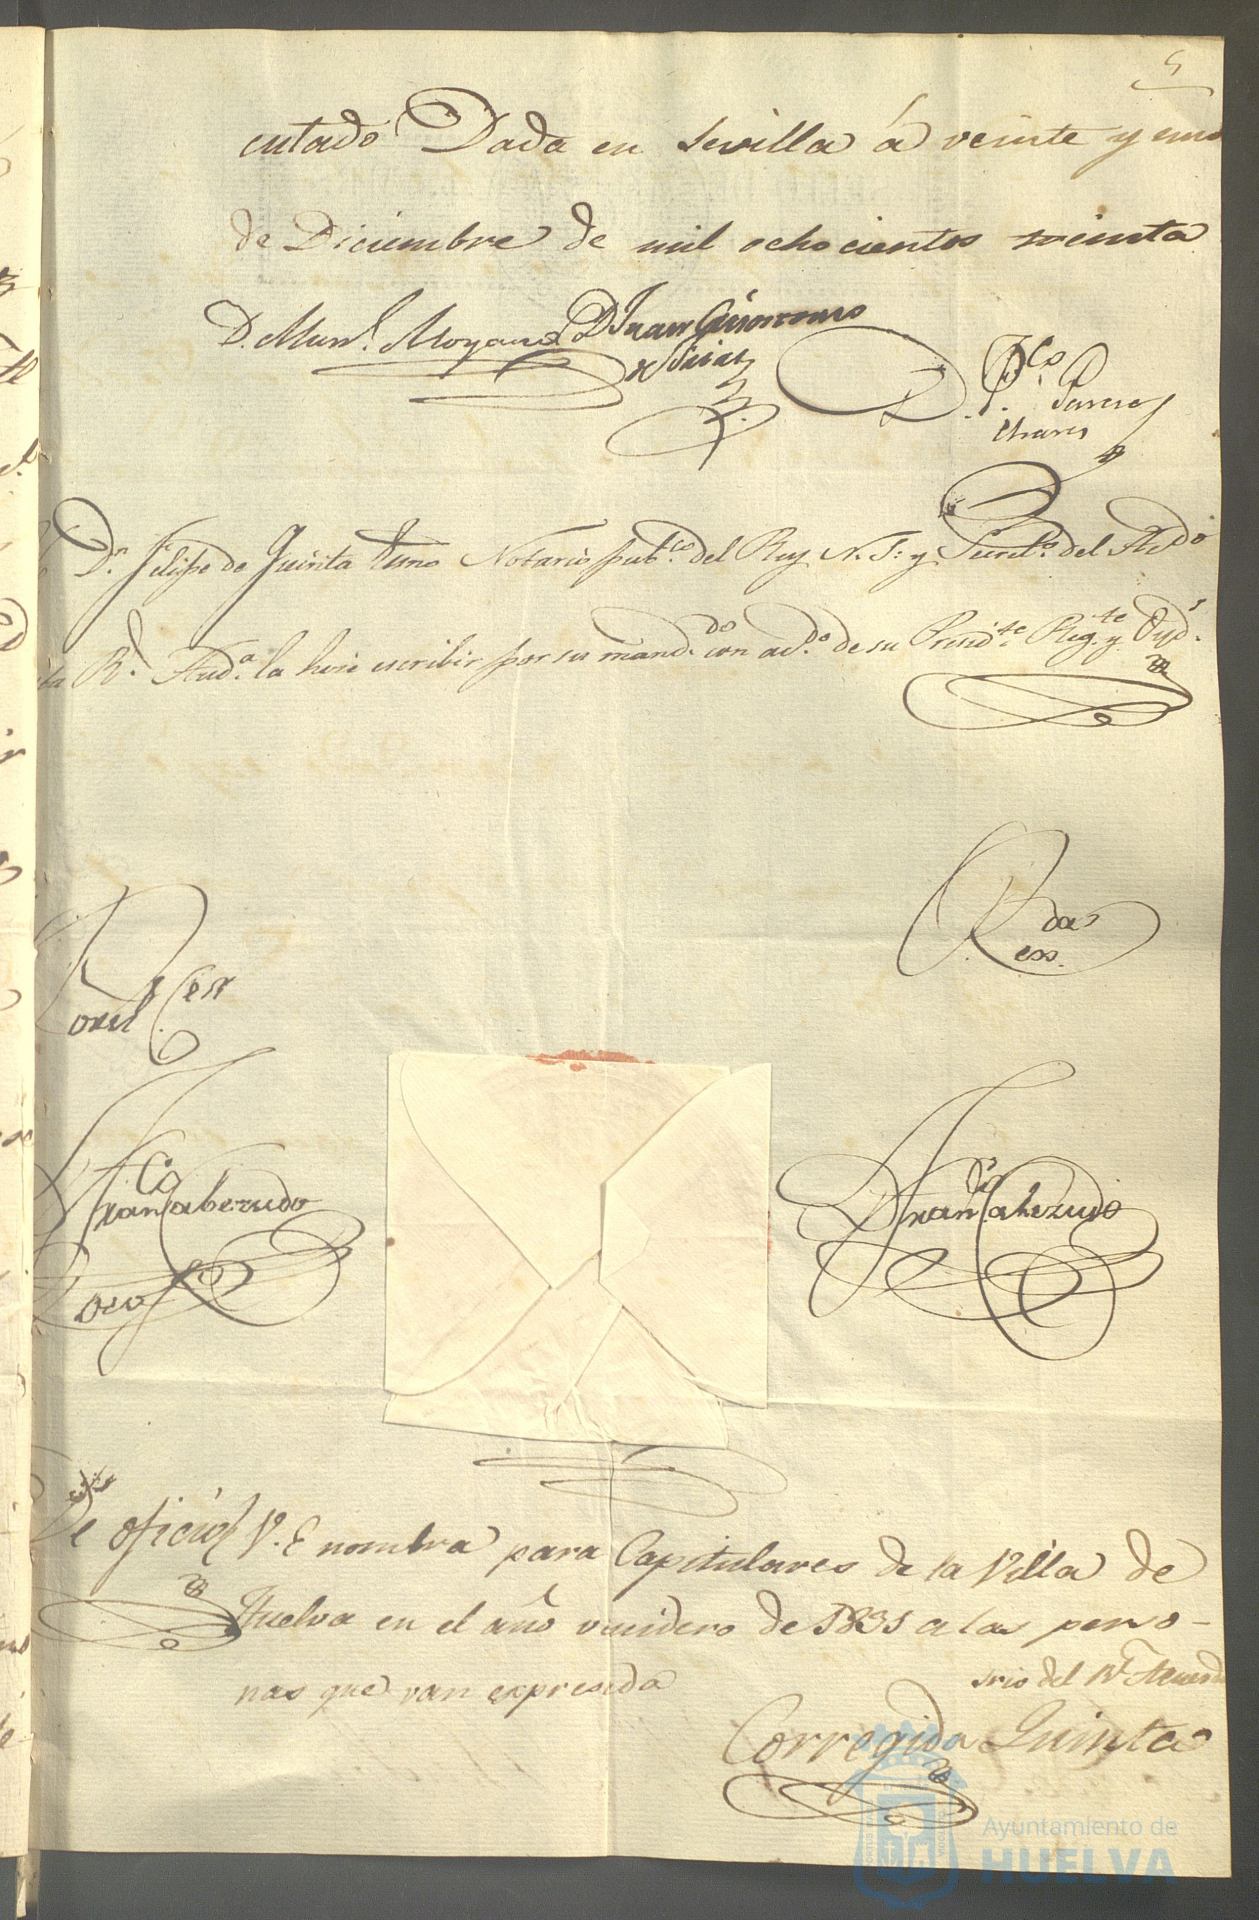 5
cutado Dada en Sevilla á veinte y uno
de Diciembre de mil ochocientos treinta
D. Man.l Moyano D. Juan Geronimo
D. Fco. P.
Chaves
D.n Felipe de Quinta Notario pub.co del Rey N. S. y Secret.o del Acdo
R.l Aud.a la hice escribir por su mand.do con acd.o de su Presid.te Reg.te y Oyd.s
Rda
ess.
Franco Cabezudo
Franco Cabezudo
De oficio V. E nombra para Capitulares de la Villa de
Huelva en el año venidero de 1831 a las perso-
nas que van expresada
srio del Rl Acuerdo
Corregida Quinta
Ayuntamiento de
HUELVA